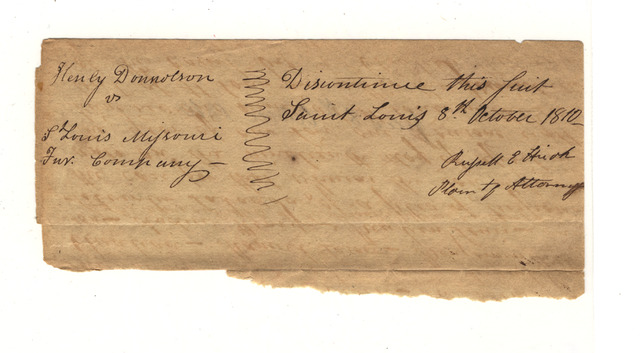 Henly Donnolson
vs
St Louis Missouri
Fur. Company
Discontinue this suit
Saint Louis 8th October 1810
Plaintf Attorney